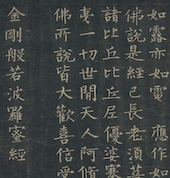 如露亦如電　應作如
佛說是經已長老須菩
諸比丘比丘尼優婆塞
夷一切世間天人阿脩
佛所說皆大歡喜信受
金剛般若波羅蜜經